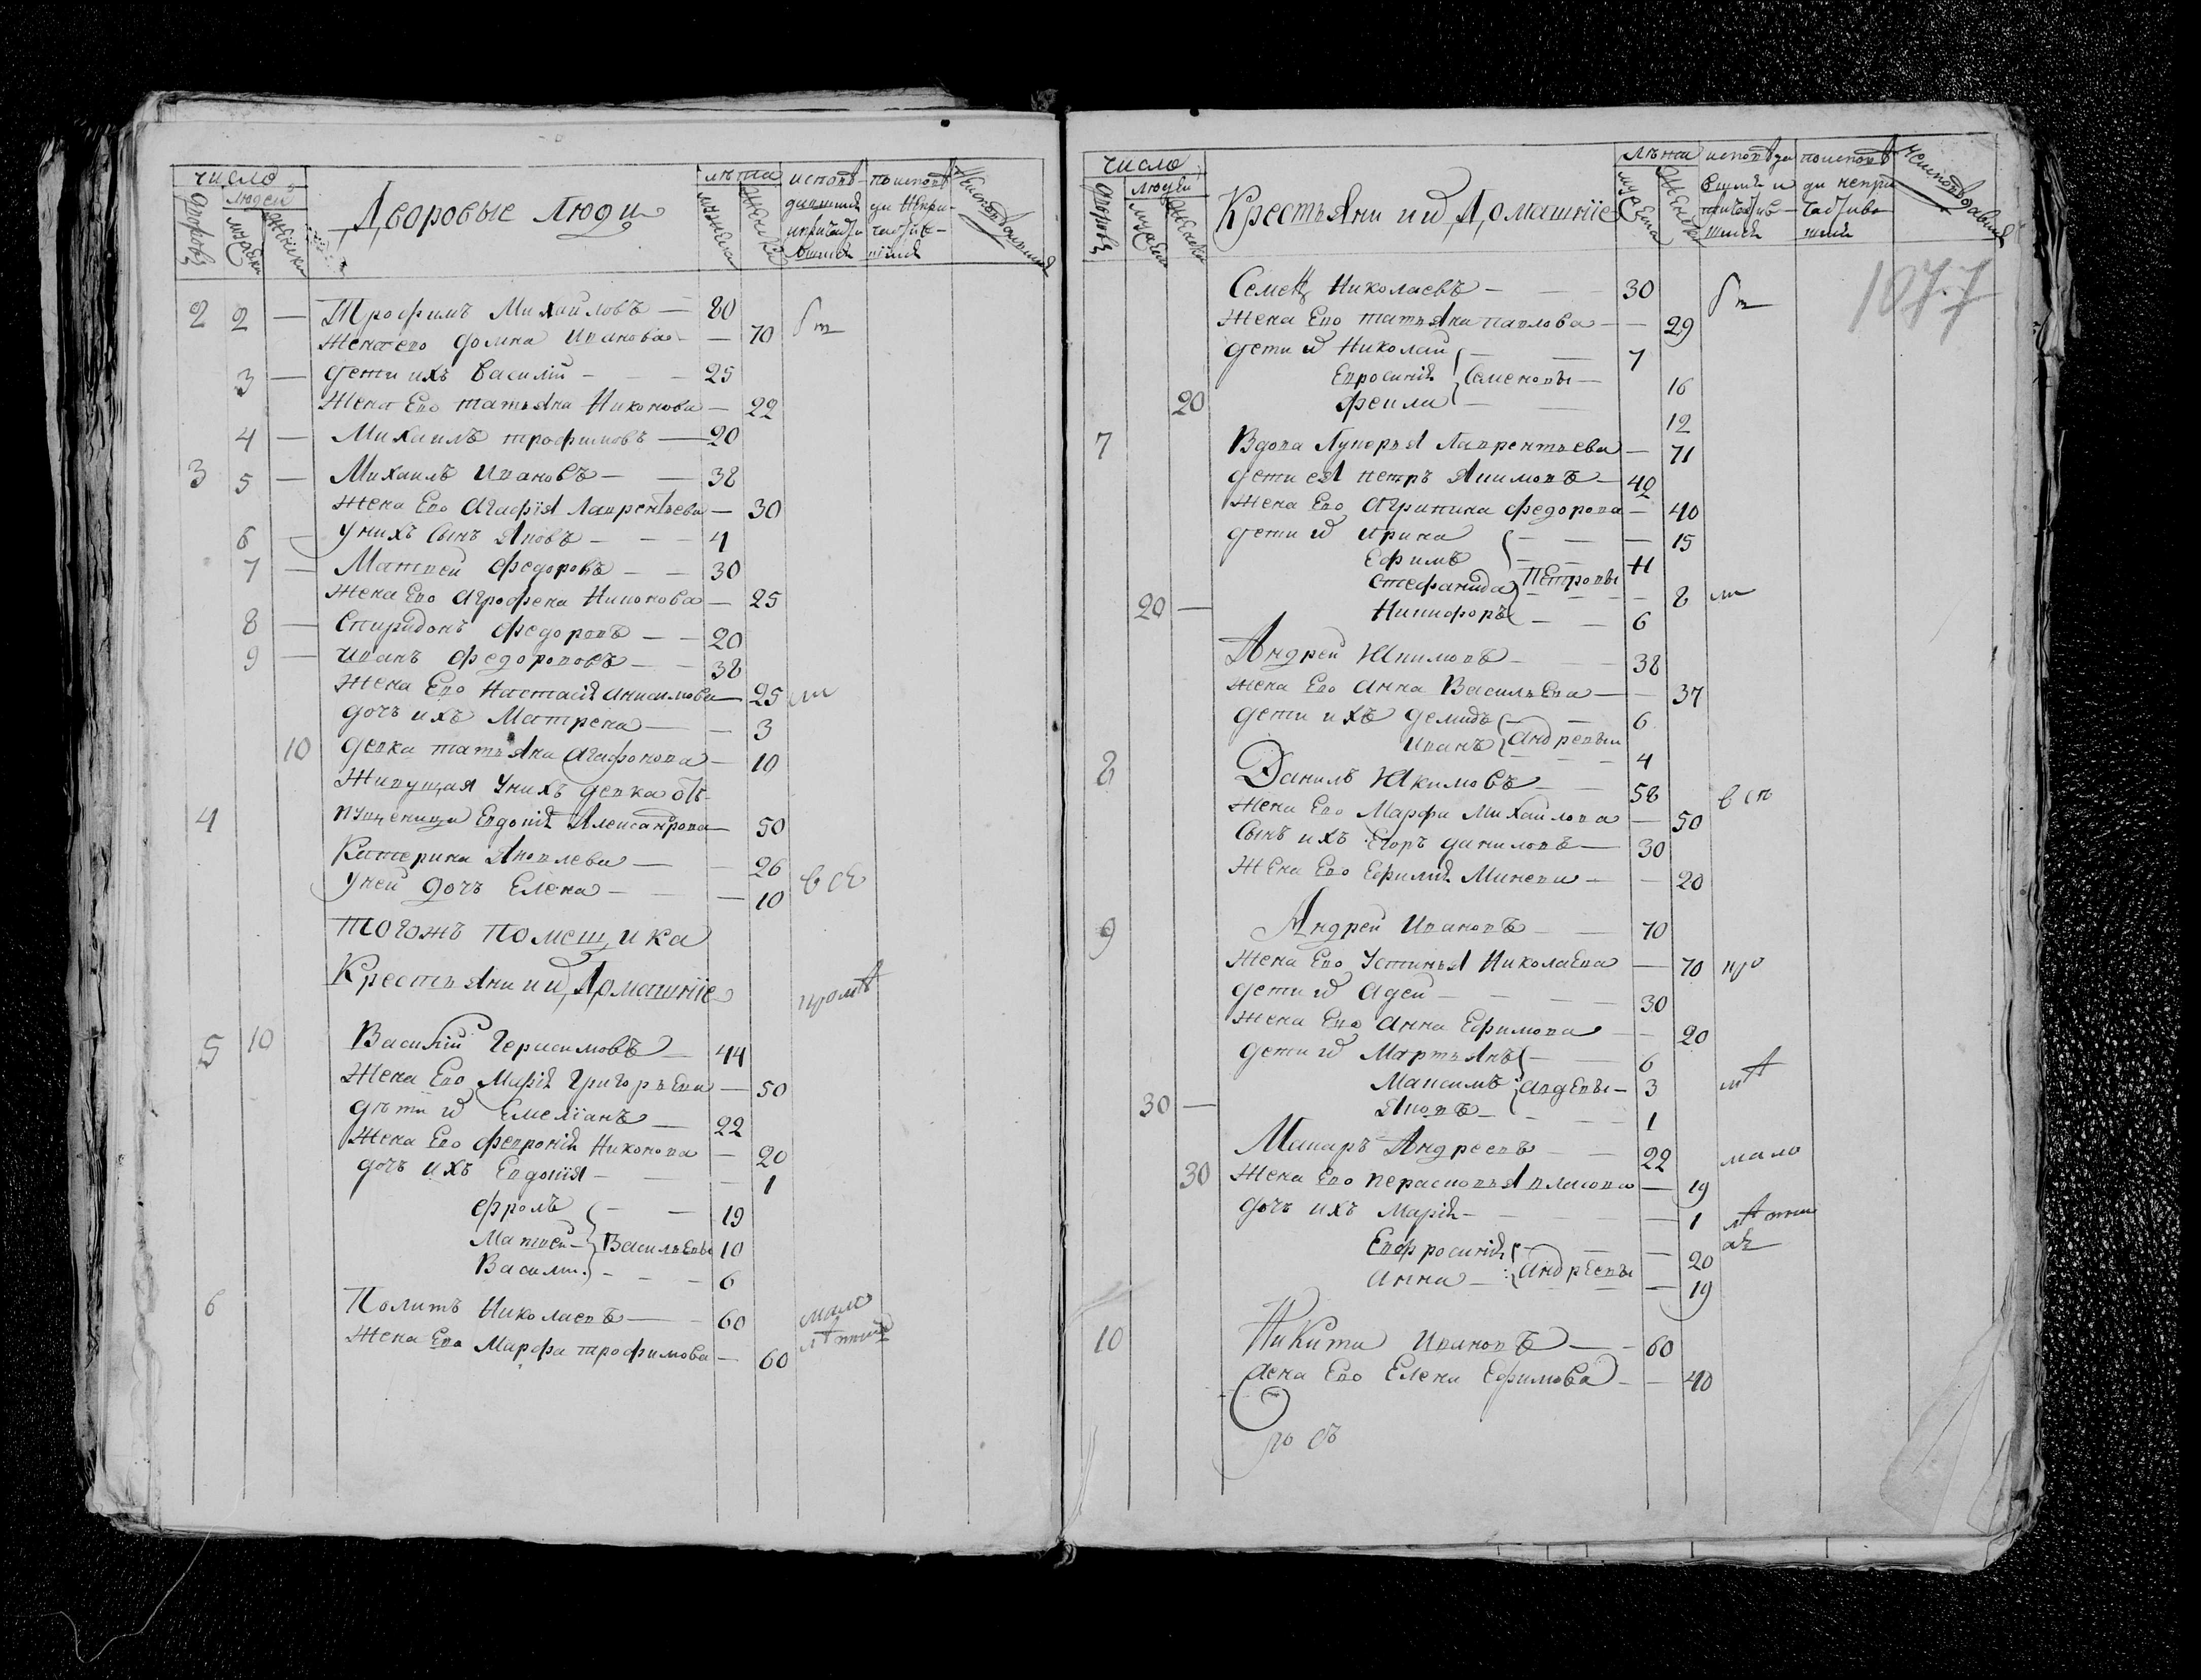 число
людей
дворовъ
мужска
женска
Дворовые люди
лѣта
мужеска
женска
исповѣ-
давшихся
и причасти
вшихся
по исповѣ
ди непри-
частив-
шихся
2 2 — Трофимъ Михаиловъ — 80
Жена ево Домна Иванова — 70
3 — Дети ихъ Василiй — 25
Жена Ево татьяна Никонова — 22
4 — Михаилъ трофимовъ — 20
3 5 — Михаилъ Ивановъ — 38
Жена Ево Агафiя Лаврентьева — 30
6 — У нихъ Сынъ Яковъ — 4
7 — Матвеи Федоровъ — 30
Жена Ево Агрофена Никонова — 25
8 — Спиридонъ Федоровъ — 20
9 — Иванъ Федоровъ — 38
Жена Ево Настасiя Анисимова — 25
дочь ихъ Матрена — 3
10 девка татьяна Агафонова — 10
Живущая У нихъ девка от-
4 пущеница Евдокiя Александрова — 50
Катерина Яковлева — 26
У ней дочь Елена — 10
тогожъ помещика
Крестьяни ихъ Домашнiе
5 10 Василiй Герасимовъ — 44
Жена Ево Марiя Григорьева — 50
дѣти их Емелiанъ — 22
Жена Ево Феврониiя Никонова — 20
дочь ихъ Евдокiя — 1
Фролъ — 19
Матвеи Васильевы 10
Васили — 6
6 Политъ Николаевъ — 60
Жена Ево Марфа трофимова — 60
число
людей
дворовъ
мужеска
женска
Крестьяни их Домашнiе
лѣта
мужеска
женска
исповѣда
вшихся и
причастив
шихся
по исповѣ
ди непри
частивъ
шихся
не исповѣдавших
107.7
Семенъ Николаевъ — 30
Жена Ево татьяна павлова — 29
дети их Николаи — 7
Евросинiя Семеновы — 16
20 Фекла — 12
7 Вдова Лукерья Лаврентьева — 71
дети ея петръ Якимовъ — 40
Жена Ево Агрипина Федорова — 40
дети их Ирина — 15
Ефимъ — 11
Стефанида Петровы — 8
20 — Никифоръ — 6
Андреи Якимовъ — 38
Жена Ево Анна Васильева — 37
дети ихъ демидъ — 6
Иванъ Андреевы — 4
8 Данилъ Якимовъ — 58
Жена Ево Марфа Михаилова — 50
Сынъ ихъ Егоръ даниловъ — 30
Жена Ево Ефимiя Минева — 20
9 Андреи Ивановъ — 70
Жена Ево Устинья Николаева — 70
дети их Адеи — 30
Жена Ево Анна Ефимова — 20
дети их Мартьянъ — 6
Максимъ Авдеевы — 3
30 — Яковъ — 1
Макаръ Андреевъ — 22
30 Жена Ево Перасковья власова — 19
дочь ихъ Марiя — 1
Евфросинiя — 20
Анна — Андреевы — 19
10 Никита Ивановъ — 60
Жена Ево Елена Ефимова — 40